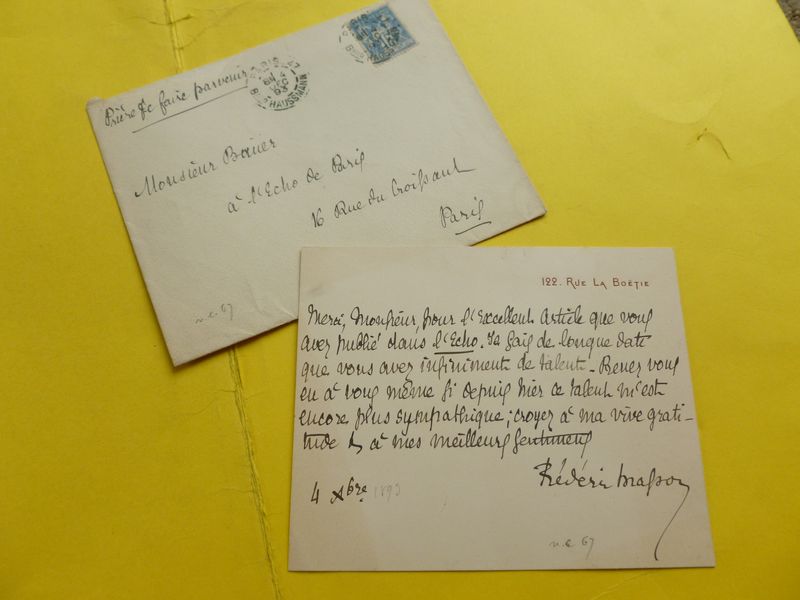 Prière de faire parvenir
PARIS
DEC
93
Bd HAUSSMANN
PARIS
15
Monsieur Bauer
à l'Echo de Paris
16 Rue du Croissant
Paris
n.c. 67
122. RUE LA BOËTIE
Merci, Monsieur, pour l'Excellent Article que vous
avez publié dans l'Echo. Je sais de longue date
que vous avez infiniment de talent - Prenez vous
en à vous même si depuis hier ce talent m'est
encore plus sympathique; croyez à ma vive grati-
tude & à mes meilleurs sentiments
Frédéric Masson
4 Xbre 1893
n.c. 67